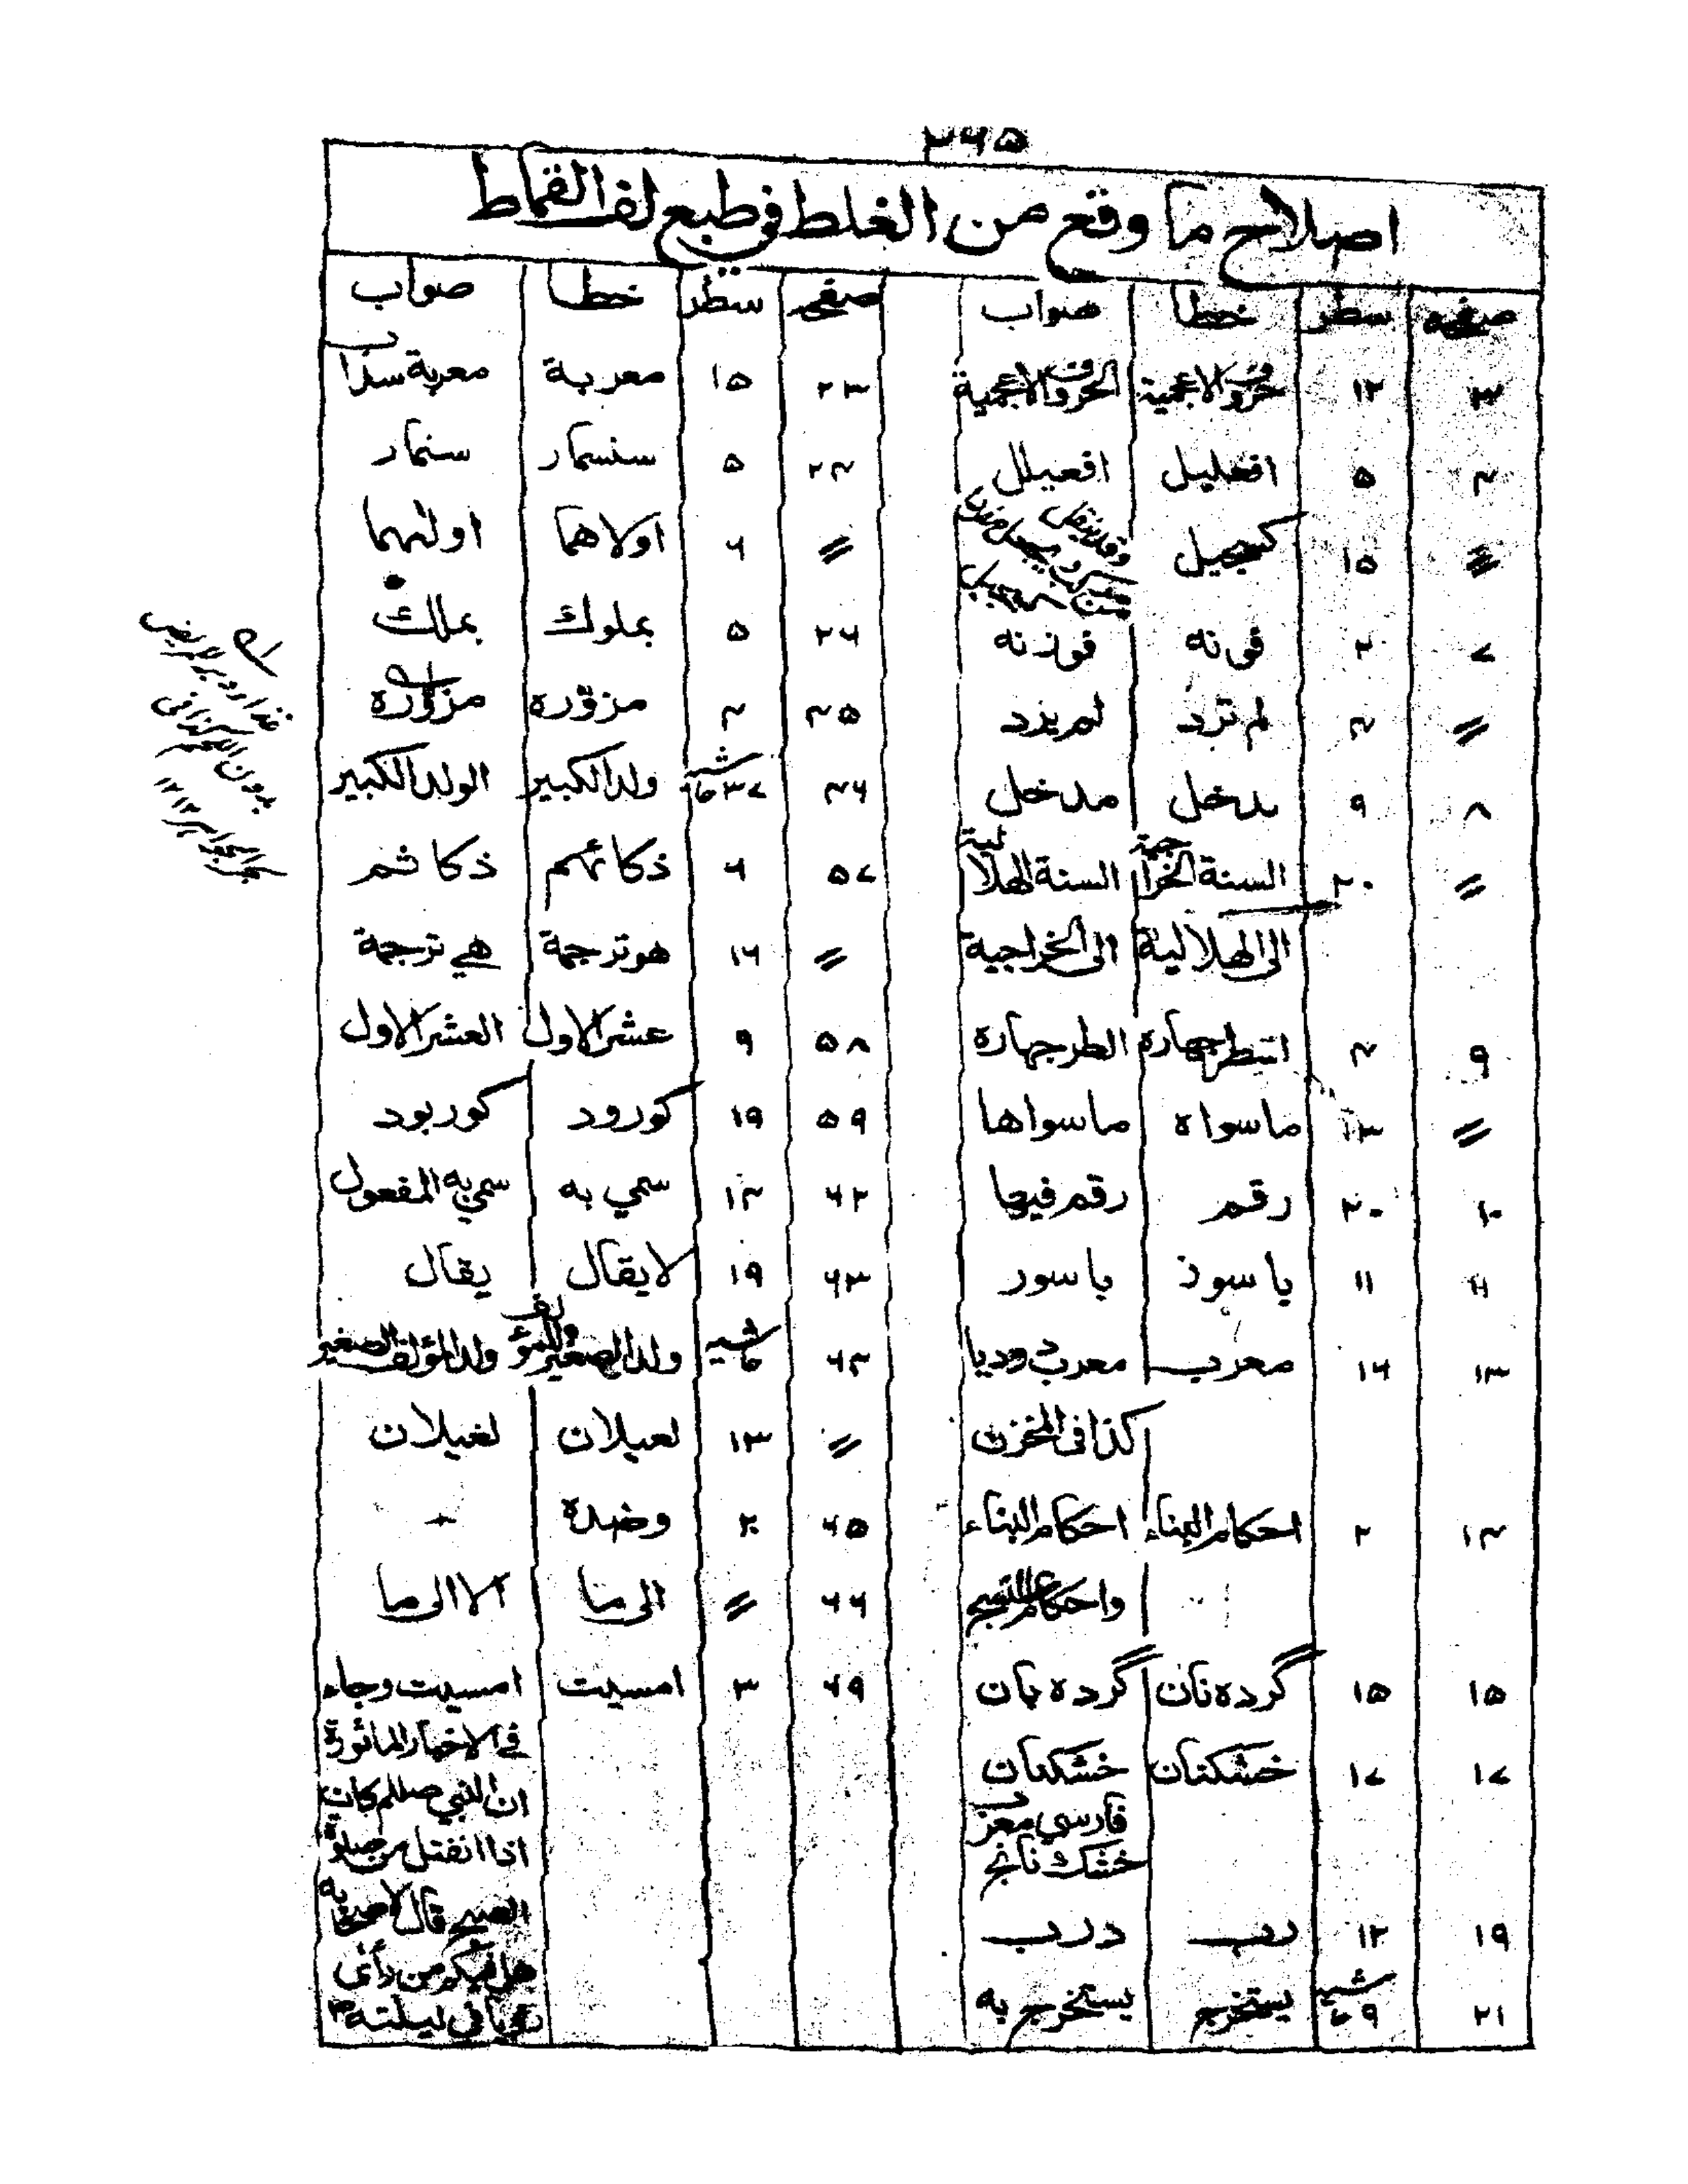 ٢٦٥
اصلاح ما وقع من الغلط فی طبع لف القماط
صفحه سطر خطا صواب
٣ ١٢ حروف الاعجمية الحروف الاعجمية
٤ ٥ افعليل افعيلل
〃 ١٥ كسجيل
٧ ٢ فونه فوزنه
〃 ٤ لم ترد لم يرد
٨ ٩ بدخل مدخل
〃 ٢٠ السنة الخراجية السنة الهلالية
الى الهلالية الى الخراجية
٩ ٤ الطرجهارة
〃 ١٣ ماسواه ماسواها
١٠ ٢٠ رقم رقم فيها
١١ ١١ ياسوز ياسور
١٣ ١٦ معرب معرب دوديا
كذا فی المخزن
١٤ ٢ احكام البناء احكام البناء
واحكام
١٥ ١٥ گرده نان گرده بان
١٧ ١٧ خشكنان خشكنان
فارسي معرب
خشك نانج
١٩ ١٢ رب درب
٢١ ٩ حاشيه يستخرج يستخرج به
صفحه سطر خطا صواب
٢٣ ١٥ معربة معربة سذاب
٢٤ ٥ سنسمار سنمار
〃 ٦ اولاهما اولٰهما
٢٦ ٥ بملوك بملك
٤٥ ٤ مزوّره
٤٦ ٣٧ حاشيه ولد الكبير الولد الكبير
٥٧ ٦ ذكائهم ذكا ثم
〃 ١٦ هو ترجمة هي ترجمة
٥٨ ٩ عشر الاول العشر الاول
٥٩ ١٩ كورود كوربود
٦٢ ١٤ سمي به سمي به المفعول
٦٣ ١٩ لايقال يقال
٦٤ حاشيه ولد الصغير للمؤلف ولد المؤلف الصغير
〃 ١٣ لعيلان لغيلان
٦٥ ٢ وضده
٦٦ 〃 الى ما الا الى ما
٦٩ ٣ امسيت امسيت وجاء
في الاخبار الماثورة
ان النبي صللم كان
اذا انفتل من صلوة
الصبح قال لاصحابه
هل فيكم من رأى
رؤيا فی ليلته ١٢